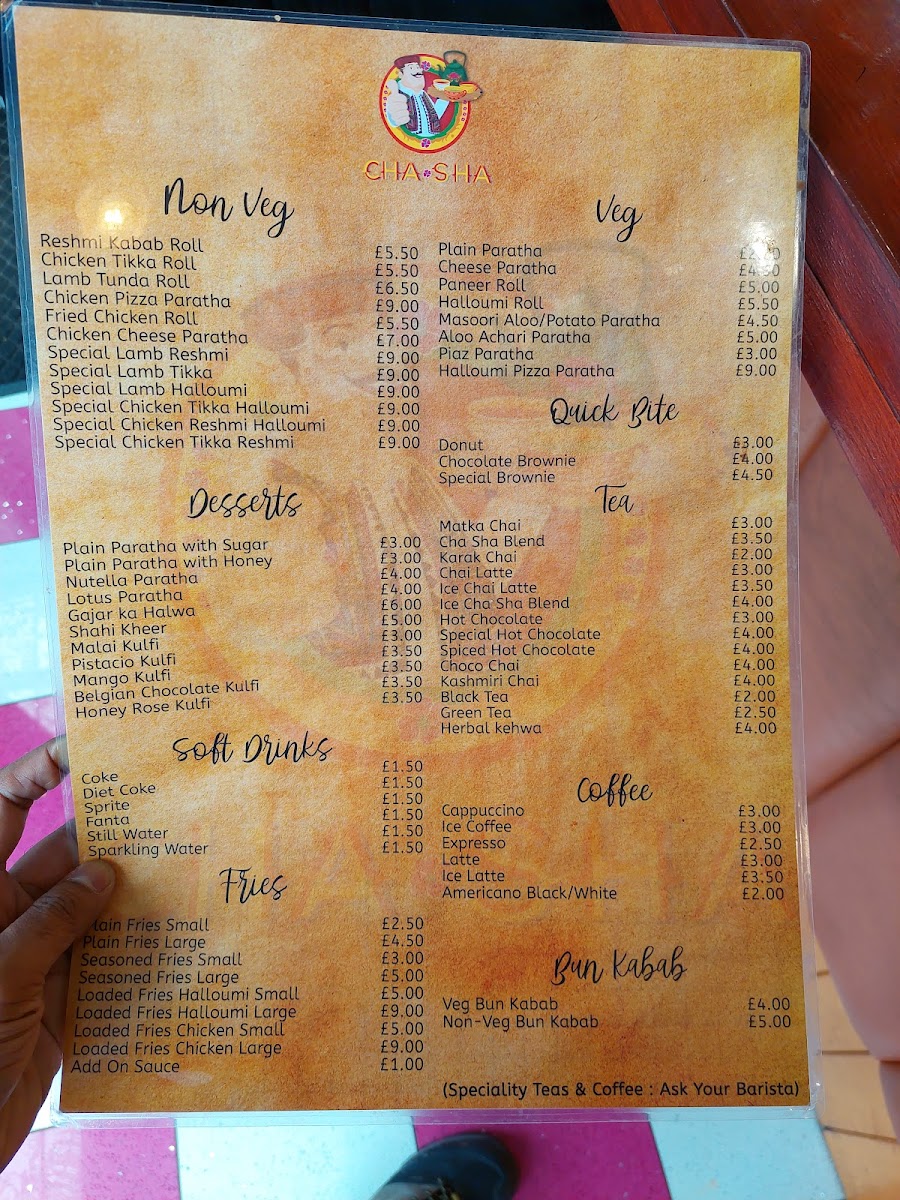 CHA SHA
Non Veg
Reshmi Kabab Roll £5.50
Chicken Tikka Roll £5.50
Lamb Tunda Roll £6.50
Chicken Pizza Paratha £9.00
Fried Chicken Roll £5.50
Chicken Cheese Paratha £7.00
Special Lamb Reshmi £9.00
Special Lamb Tikka £9.00
Special Lamb Halloumi £9.00
Special Chicken Tikka Halloumi £9.00
Special Chicken Reshmi Halloumi £9.00
Special Chicken Tikka Reshmi £9.00
Desserts
Plain Paratha with Sugar £3.00
Plain Paratha with Honey £3.00
Nutella Paratha £4.00
Lotus Paratha £4.00
Gajar ka Halwa £6.00
Shahi Kheer £5.00
Malai Kulfi £3.00
Pistacio Kulfi £3.50
Mango Kulfi £3.50
Belgian Chocolate Kulfi £3.50
Honey Rose Kulfi £3.50
Soft Drinks
Coke £1.50
Diet Coke £1.50
Sprite £1.50
Fanta £1.50
Still Water £1.50
Sparkling Water £1.50
Fries
Plain Fries Small £2.50
Plain Fries Large £4.50
Seasoned Fries Small £3.00
Seasoned Fries Large £5.00
Loaded Fries Halloumi Small £5.00
Loaded Fries Halloumi Large £9.00
Loaded Fries Chicken Small £5.00
Loaded Fries Chicken Large £9.00
Add On Sauce £1.00
Veg
Plain Paratha
Cheese Paratha £4.50
Paneer Roll £5.00
Halloumi Roll £5.50
Masoori Aloo/Potato Paratha £4.50
Aloo Achari Paratha £5.00
Piaz Paratha £3.00
Halloumi Pizza Paratha £9.00
Quick Bite
Donut £3.00
Chocolate Brownie £4.00
Special Brownie £4.50
Tea
Matka Chai £3.00
Cha Sha Blend £3.50
Karak Chai £2.00
Chai Latte £3.00
Ice Chai Latte £3.50
Ice Cha Sha Blend £4.00
Hot Chocolate £3.00
Special Hot Chocolate £4.00
Spiced Hot Chocolate £4.00
Choco Chai £4.00
Kashmiri Chai £4.00
Black Tea £2.00
Green Tea £2.50
Herbal kehwa £4.00
Coffee
Cappuccino £3.00
Ice Coffee £3.00
Expresso £2.50
Latte £3.00
Ice Latte £3.50
Americano Black/White £2.00
Bun Kabab
Veg Bun Kabab £4.00
Non-Veg Bun Kabab £5.00
(Speciality Teas & Coffee : Ask Your Barista)